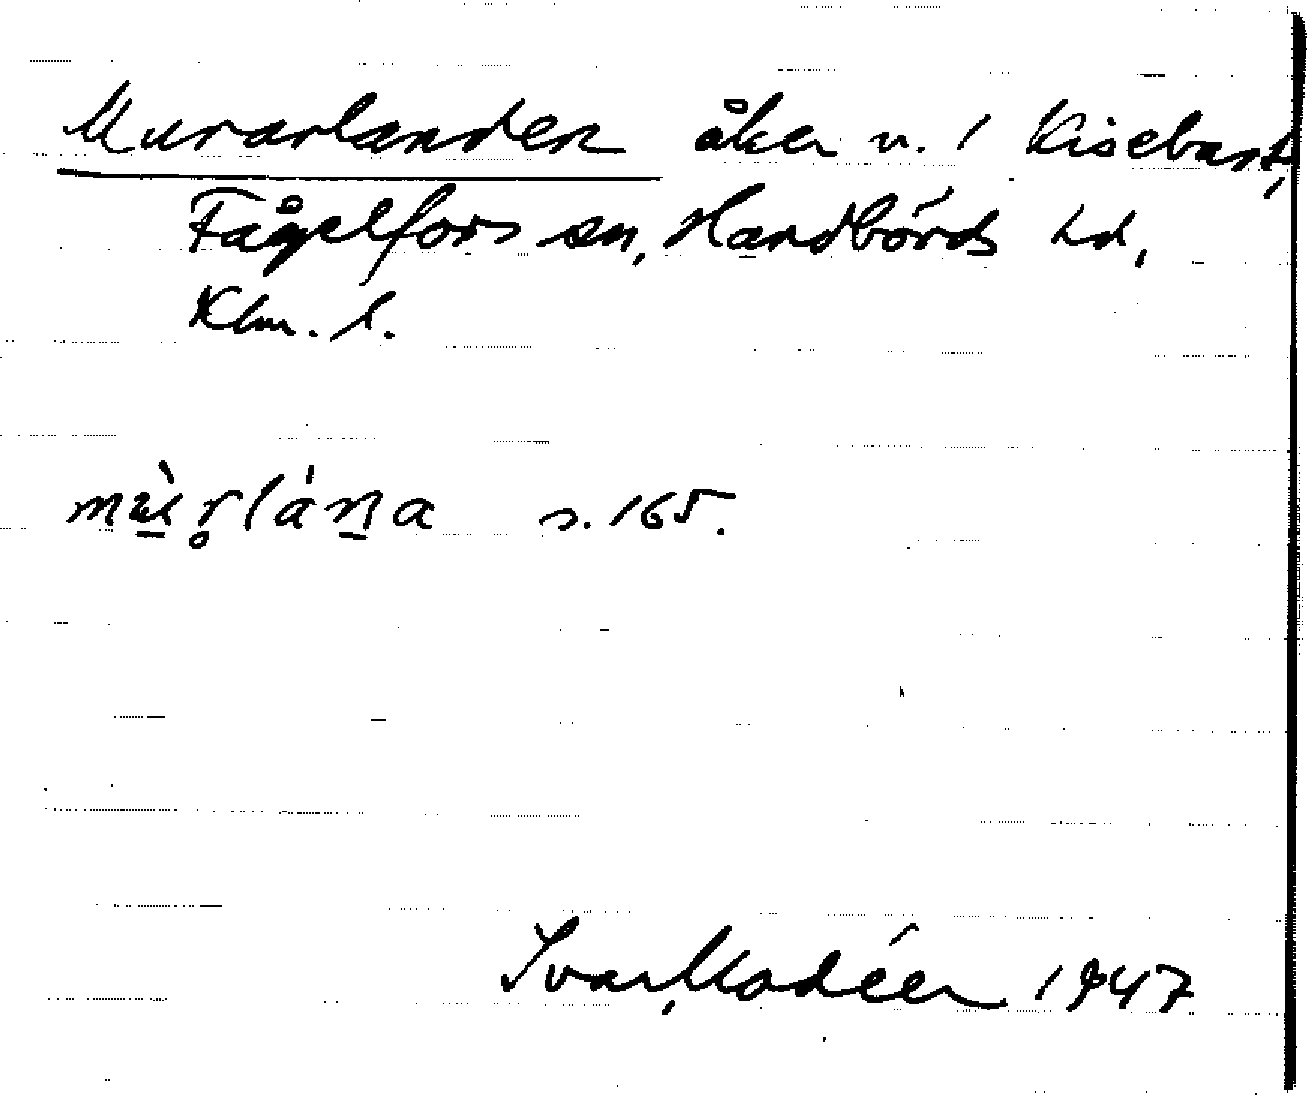 Murarlanden åker u. 1 Kisebast,
Fågelfors sn, Handbörds hd,
Klm. l.
s. 165.
Ivar Modéer 1947